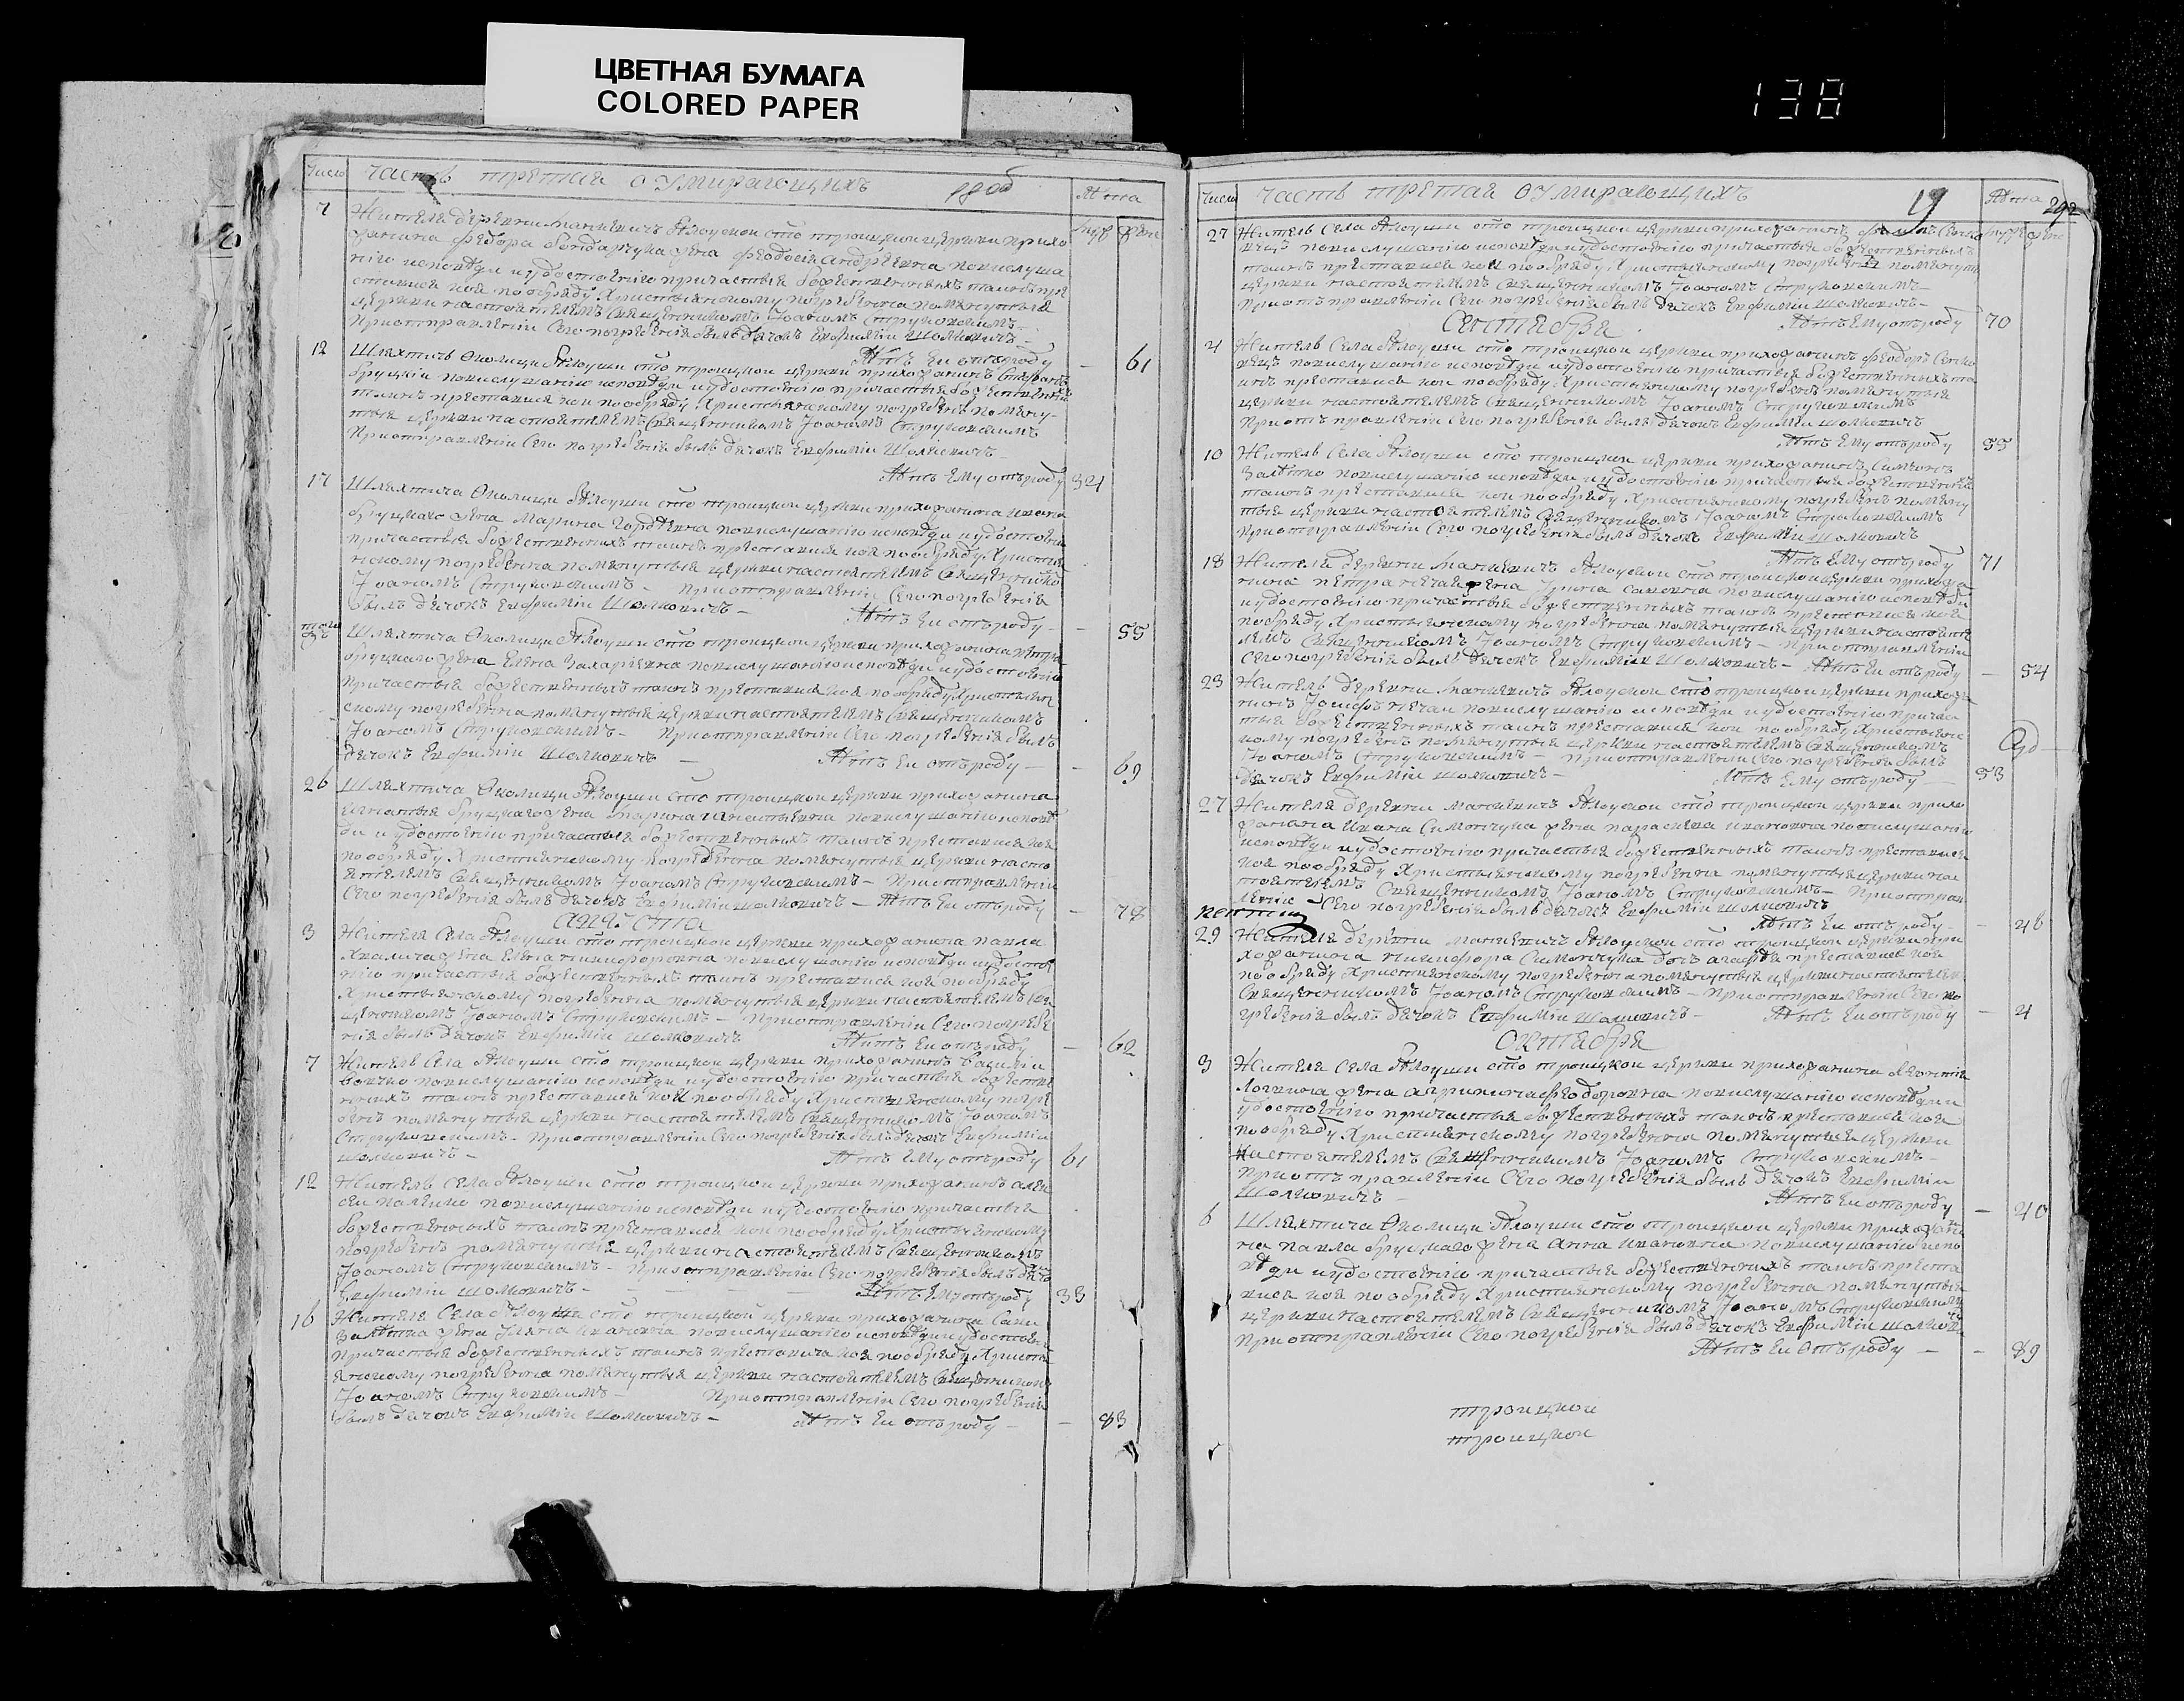 ЦВЕТНАЯ БУМАГА
COLORED PAPER
138
Число часть третая о умирающихъ Лѣта
7 Жителя деревни Маневичъ Ялоуской сто троицкой церкви прихо
жанина Федора жена Феодосія Андріевна по выслуша
нію исповѣди и удостоенію причастыя божественныхъ таинъ пре
ставися коя по обряду Христыянскому погребенна помянутыя
церкви настоятелемъ священникомъ Іоаномъ Струковскимъ
При отправленіи сего погребенія былъ дячокъ Ев­фимій Шолковичъ
Лѣтъ ей отъ роду 61
12 Шляхтичъ Околици Ялоуши сто троицкой церкви прихожанинъ
Бруцкій по выслушанію исповѣди и удостоенію причастыя божественныхъ
таинъ преставися кои по обряду Христыянскому погребенъ помяну
тыя церкви настоятелемъ священникомъ Іоаномъ Струковскимъ
При отправленіи сего погребенія былъ дячокъ Евфимій Шолковичъ
Лѣтъ ему отъ роду 32
17 Шляхтича Околици Ялоуши сто троицкой церкви прихожанина Ивана
Бруцкаго жена Марина по выслушанію исповѣди и удостоенію
причастыя божественныхъ таинъ преставися коя по обряду Христыян
скому погребенна помянутыя церкви настоятелемъ священником
Іоаномъ Струковскимъ - При отправленіи сего погребенія
былъ дячокъ Евфимій Шолковичъ - Лѣтъ ей отъ роду - 55
Шляхтича Околици Ялоуши сто троицкой церкви прихожанина Петра
Бруцкаго жена Елена Захаріевна по выслушанію исповѣди и удостоенію
причастыя божественныхъ таинъ преставися коя по обряду Христыян
скому погребенна помянутыя церкви настоятелемъ священникомъ
Іоаномъ Струковскимъ - При отправленіи сего погребенія былъ
дячокъ Евфимій Шолковичъ - Лѣтъ ей отъ роду - 69
26 Шляхтича Околици Ялоуши сто троицкой церкви прихожанина
Игнатыя Бруцкаго жена Марина Игнатыевна по выслушанію исповѣ
ди и удостоенію причастыя божественныхъ таинъ преставися коя
по обряду Христыянскому погребенна помянутыя церкви насто
ятелемъ священникомъ Іоаномъ Струковскимъ - При отправленіи
сего погребенія былъ дячокъ Евфимій Шолковичъ - Лѣтъ ей отъ роду - 78
Августа
3 Жителя села Ялоуши сто троицкой церкви прихожанина Павла
жена Елена Никифоровна по выслушанію исповѣди и удостое
нію причастыя божественныхъ таинъ преставися коя по обряду
Христыянскому погребенна помянутыя церкви настоятелемъ свя
щенникомъ Іоаномъ Струковскимъ - При отправленіи сего погребе
нія былъ дячокъ Евфимій Шолковичъ Лѣтъ ей отъ роду - 62
7 Житель села Ялоуши сто троицкой церкви прихожанинъ Василій
по выслушанію исповѣди и удостоенію причастыя божестве
нныхъ таинъ преставися кои по обряду Христыянскому погре
бенъ помянутыя церкви настоятелемъ священникомъ Іоаномъ
Струковскимъ - При отправленіи сего погребенія былъ дячокъ Евфимій
Шолковичъ - Лѣтъ ему отъ роду 61
12 Житель села Ялоуши сто троицкой церкви прихожанинъ Алек
сей по выслушанію исповѣди и удостоенію причастыя
божественныхъ таинъ преставися кои по обряду Христыянскому
погребенъ помянутыя церкви настоятелемъ священникомъ
Іоаномъ Струковскимъ - При отправленіи сего погребенія былъ дячо
Евфимій Шолковичъ - Лѣтъ ему отъ роду 33
16 Жителя села Ялоуши сто троицкой церкви прихожанина
жена Ивановна по выслушанію исповѣди и удостоенію
причастыя божественныхъ таинъ коя по обряду Христы
янскому погребенна помянутыя церкви настоятелемъ священником
Іоаномъ Струковскимъ - При отправленіи сего погребенія
былъ дячокъ Евфимій Шолковичъ - Лѣтъ ей отъ роду - 83
Число часть третая о умирающихъ 19 Лѣта 292
27 Житель села Ялоуши сто троицкой церкви прихожанинъ
по выслушанію исповѣди и удостоенію причастыя божественныхъ
таинъ преставися кои по обряду Христыянскому погребенъ помянуты
церкви настоятелемъ священникомъ Іоаномъ Струковскимъ -
При отправленіи сего погребенія былъ дячокъ Евфимій Шолковичъ -
Лѣтъ ему отъ роду 70
Сентября
4 Житель села Ялоуши сто троицкой церкви прихожанинъ Феодоръ
по выслушанію исповѣди и удостоенію причастыя божественныхъ та
инъ преставися кои по обряду Христыянскому погребенъ помянутыя
церкви настоятелемъ священникомъ Іоаномъ Струковскимъ
При отправленіи сего погребенія былъ дячокъ Евфимій Шолковичъ
Лѣтъ ему отъ роду 55
10 Житель села Ялоуши сто троицкой церкви прихожанинъ Симеонъ
по выслушанію исповѣди и удостоенію причастыя божественныхъ
таинъ преставися кои по обряду Христыянскому погребенъ помяну
тыя церкви настоятелемъ священникомъ Іоаномъ Струковскимъ
При отправленіи сего погребенія былъ дячокъ Евфимій Шолковичъ
Лѣтъ ему отъ роду 71
18 Жителя деревни Маневичъ Ялоуской сто троицкой церкви прихожа
нина Петра Нечая жена Ирина по выслушанію исповѣди
и удостоенію причастыя божественныхъ таинъ преставися коя
по обряду Христыянскому погребенна помянутыя церкви настояте
лемъ священникомъ Іоаномъ Струковскимъ - При отправленіи
сего погребенія былъ дячокъ Евфимій Шолковичъ - Лѣтъ ей отъ роду - 54
23 Житель деревни Маневичъ Ялоуской сто троицкой церкви прихожа
нинъ Іосифъ Нечай по выслушанію исповѣди и удостоенію прича
стыя божественныхъ таинъ преставися кои по обряду Христыянс
кому погребенъ помянутыя церкви настоятелемъ священникомъ
Іоаномъ Струковскимъ - При отправленіи сего погребенія былъ
дячокъ Евфимій Шолковичъ - Лѣтъ ему отъ роду 53
27 Жителя деревни Маневичъ Ялоуской сто троицкой церкви прихо
жанина Ивана Симончука жена Параскева Ивановна по выслушанію
исповѣди и удостоенію причастыя божественныхъ таинъ преставися
коя по обряду Христыянскому погребенна помянутыя церкви нас
тоятелемъ священникомъ Іоаномъ Струковскимъ - При отправ
леніи сего погребенія былъ дячокъ Евфимій Шолковичъ
Лѣтъ ей отъ роду - 46
29 Жителя деревни Маневичъ Ялоуской сто троицкой церкви при
хожанина Никифора Симончука дочь Агафія преставися коя
по обряду Христыянскому погребенна помянутыя церкви настоятелем
священникомъ Іоаномъ Струковскимъ - При отправленіи сего по
гребенія былъ дячокъ Евфимій Шолковичъ - Лѣтъ ей отъ роду - 4
Октября
3 Жителя села Ялоуши сто троицкой церкви прихожанина Леонтія
жена Агрипина Феодоровна по выслушанію исповѣди и
удостоенію причастыя божественныхъ таинъ преставися коя
по обряду Христыянскому погребенна помянутыя церкви
настоятелемъ священникомъ Іоаномъ Струковскимъ -
При отправленіи сего погребенія былъ дячокъ Евфимій
Шолковичъ - Лѣтъ ей отъ роду - 40
6 Шляхтича Околици Ялоуши сто троицкой церкви прихожани
на Павла Бруцкаго жена Анна Ивановна по выслушанію испо
вѣди и удостоенію причастыя божественныхъ таинъ преста
вися коя по обряду Христыянскому погребенна помянутыя
церкви настоятелемъ священникомъ Іоаномъ Струковскимъ
При отправленіи сего погребенія былъ дячокъ Евфимій Шолкович
Лѣтъ ей отъ роду - 89
троицкои
троицкои